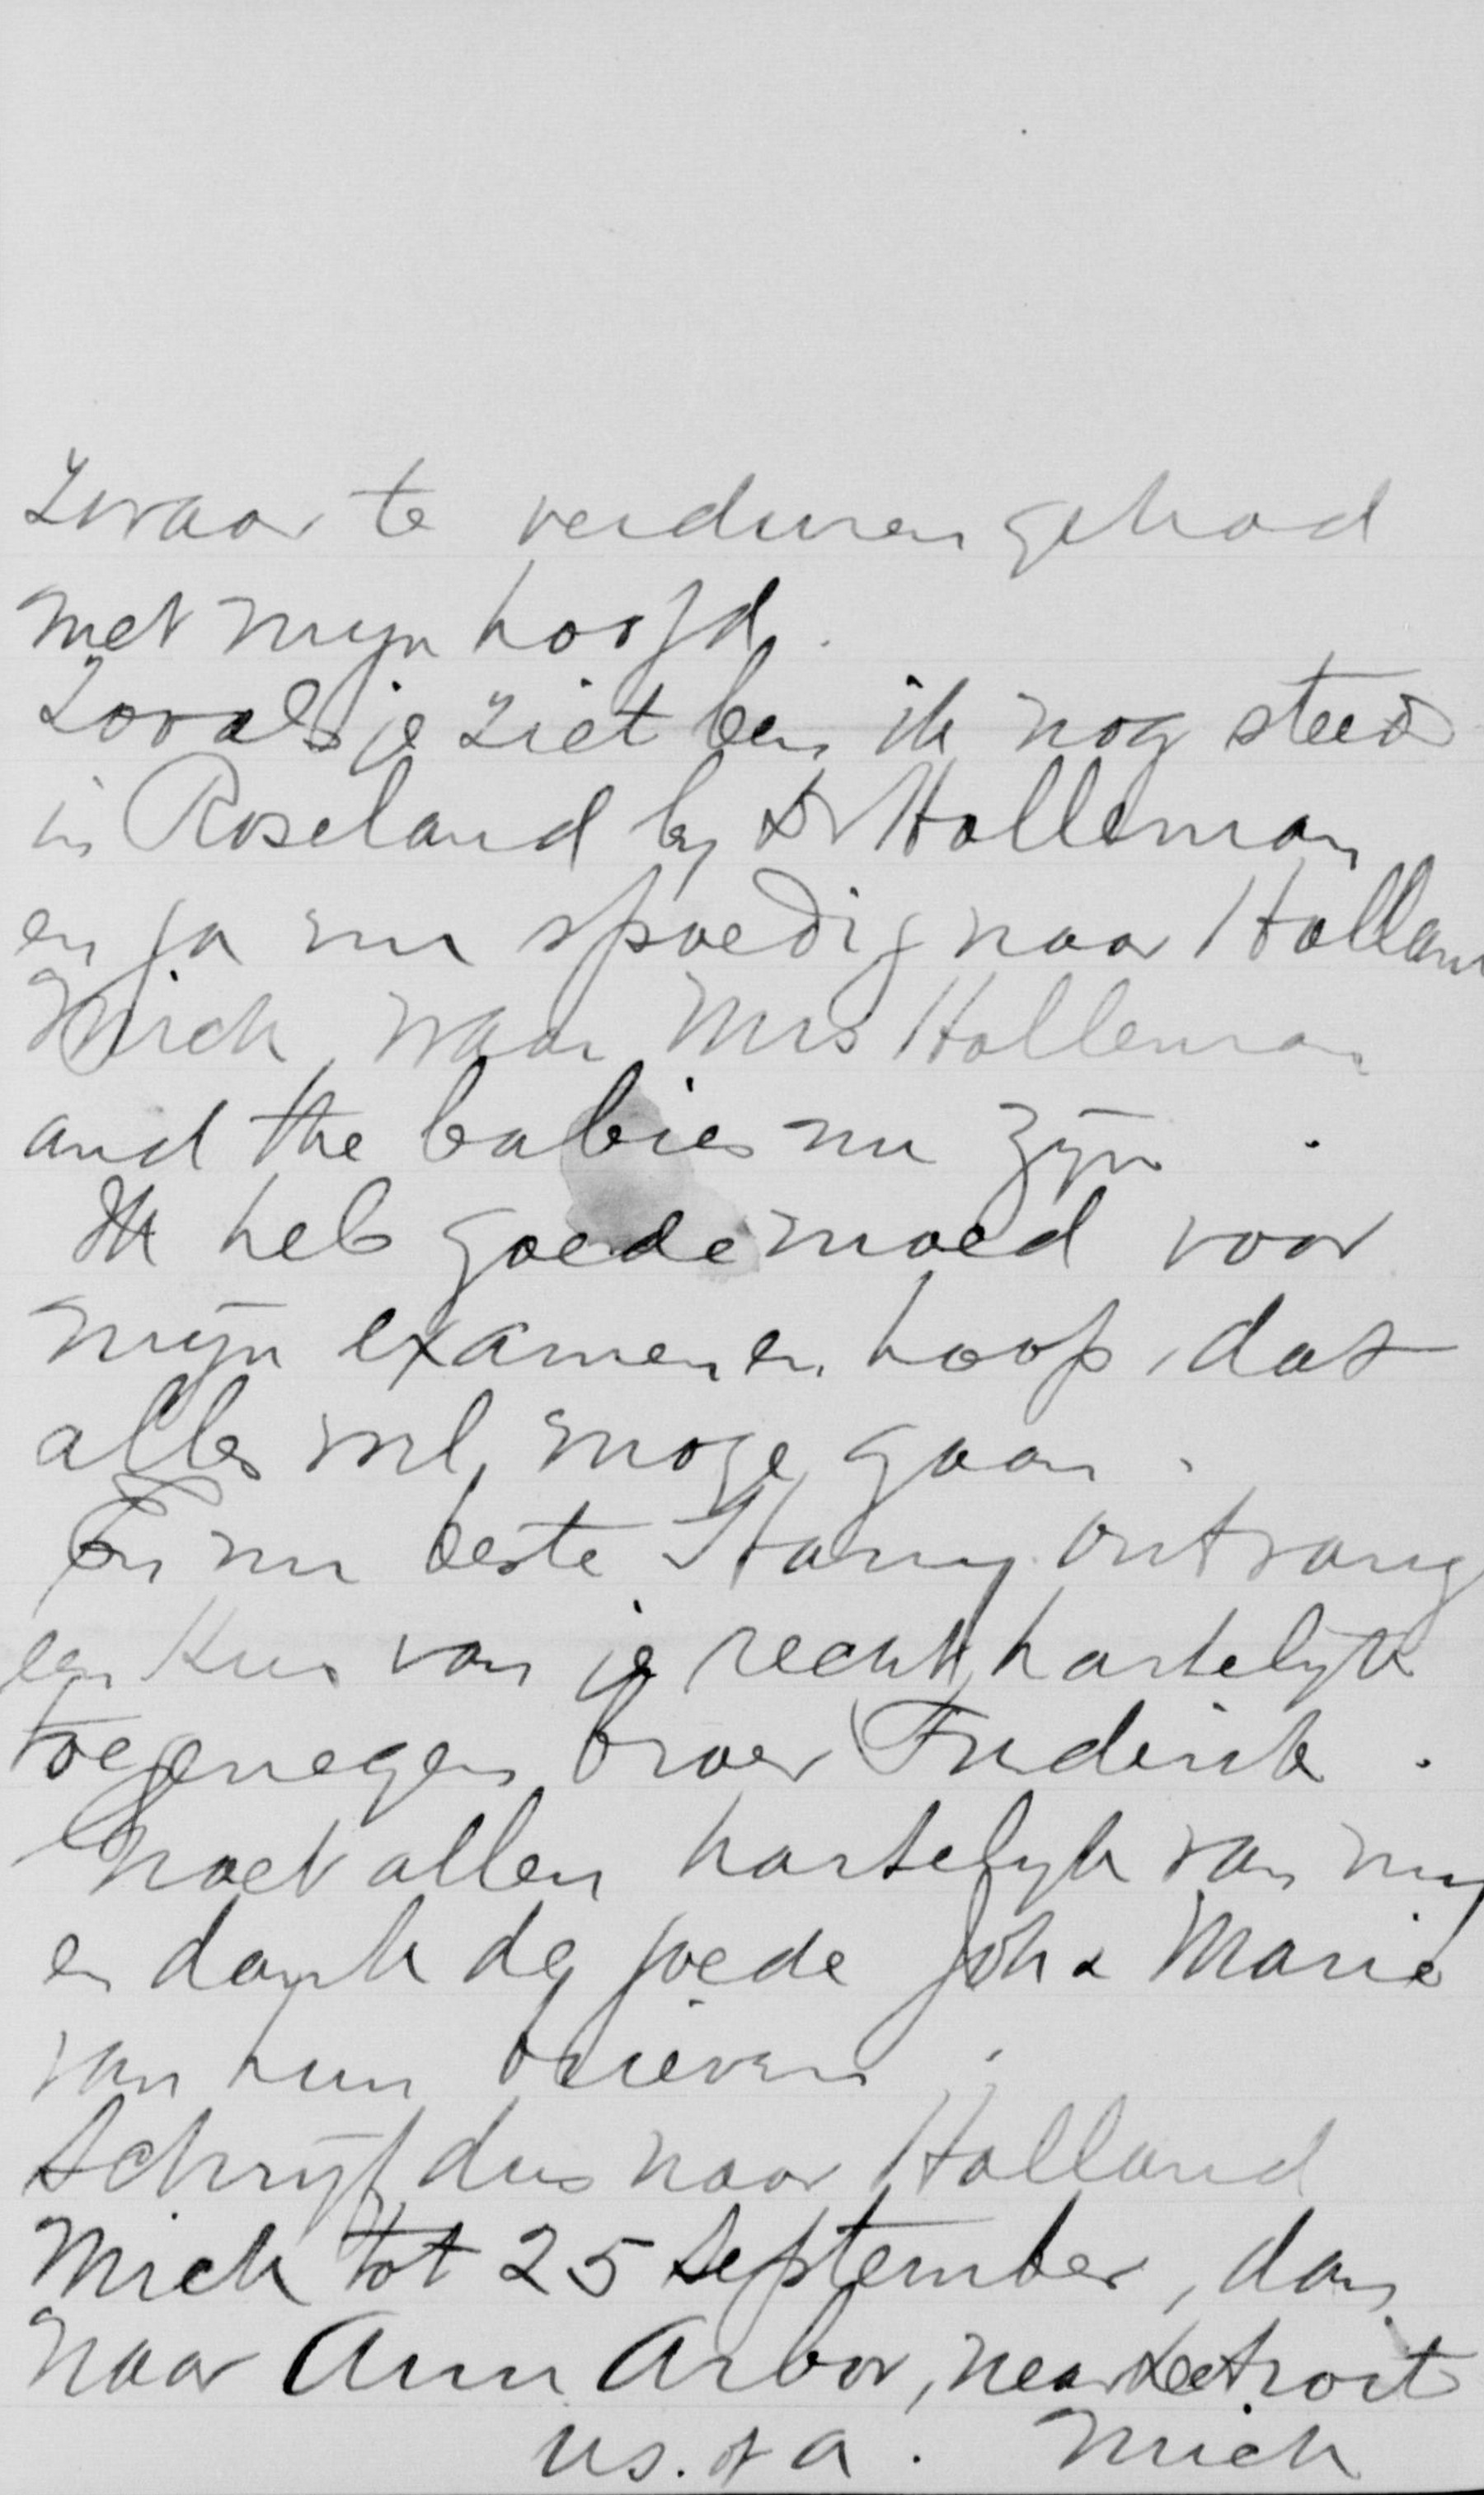 zwaar te verduren gehad
met mijn hoofd.
Zooals je ziet ben ik nog steeds
in Roseland by Dr Holleman
en ga nu spoedig naar Holland
Mich, waar Mrs Holleman
and the babies nu zijn.
Ik heb goede moed voor
mijn examen en hoop, dat
alles wel moge gaan.
En nu beste Hanny ontvang
een kus van je recht hartelijk
toegenegen broer Frederik.
Groet allen hartelijk van mij
en dank de goede Joh & Marie
van hun brieven.
Schrijf dus naar Holland
Mich tot 25 September, dan
naar Ann Arbor, near Detroit
U.S. of A. Mich